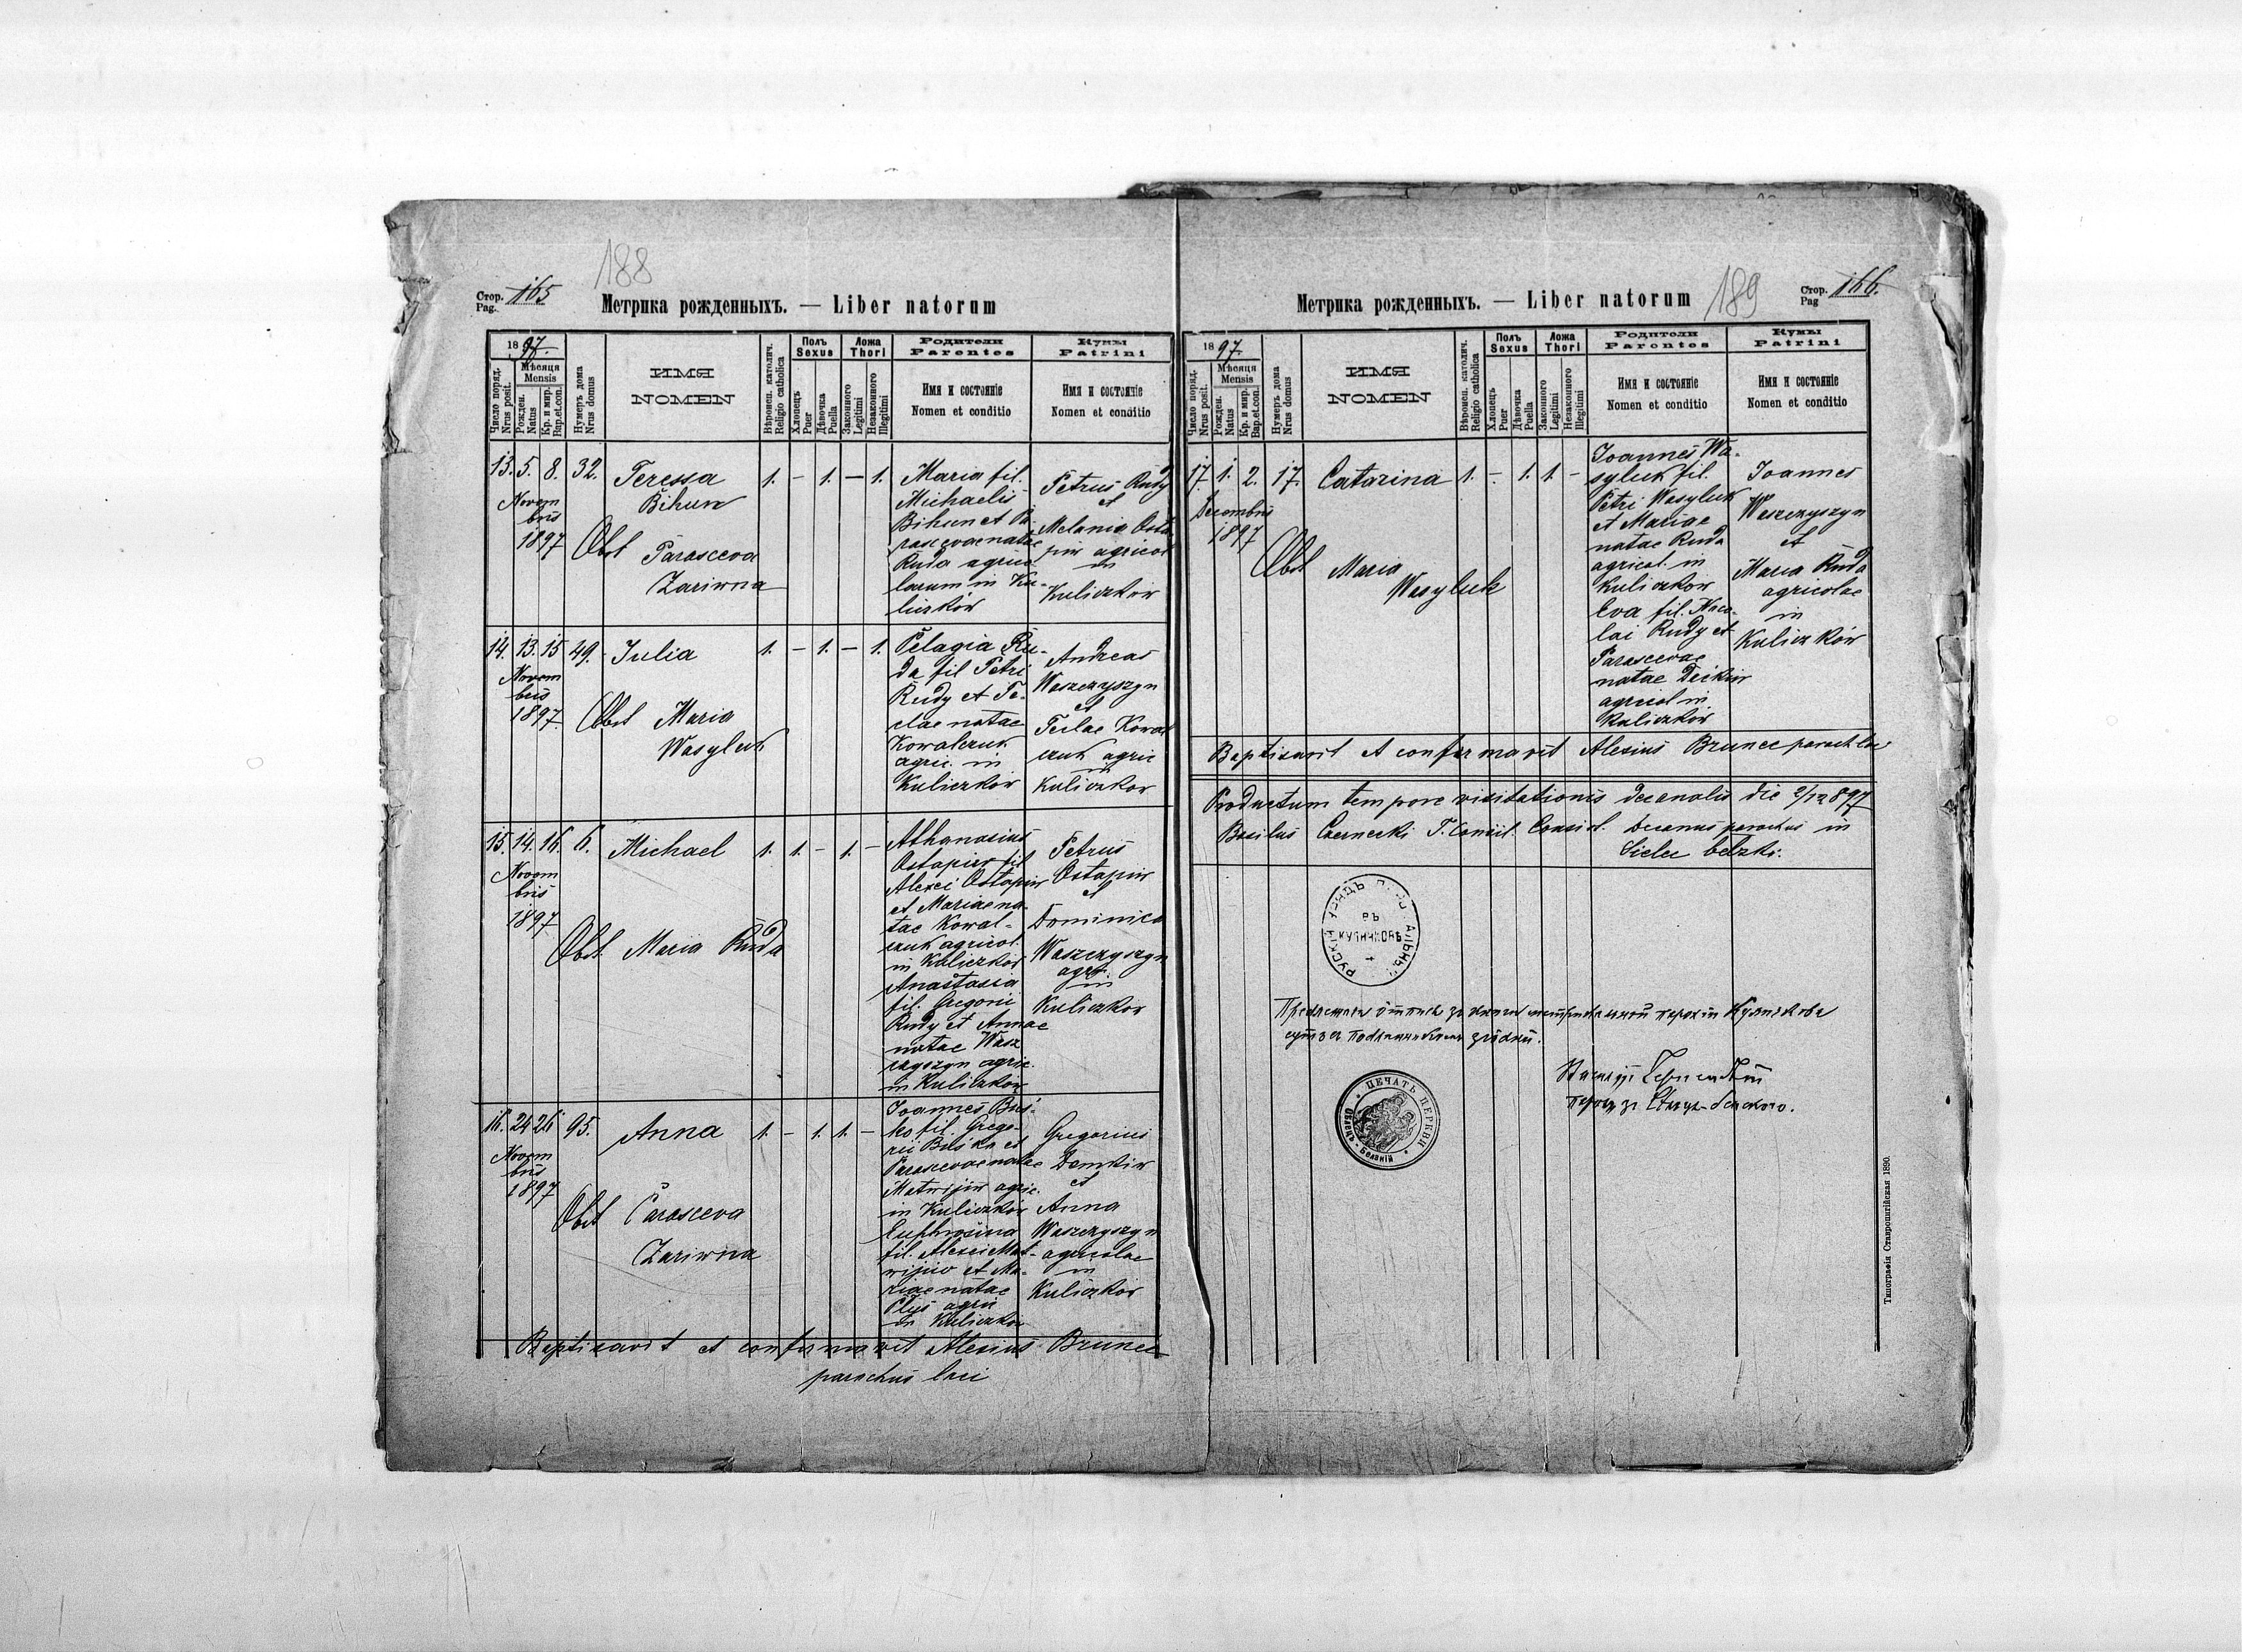 188
Стор. 165
Pag.
Метрика рожденныхъ. — Liber natorum
1897.
Число поряд.
Nrus posit.
Мѣсяця
Mensis
Рожден.
Natus
Кр. и мир.
Bap.et.con.
Нумеръ дома
Nrus domus
ИМЯ
NOMEN
Вѣроисп. католич.
Religio catholica
Полъ
Sexus
Хлопецъ
Puer
Дѣвочка
Puella
Ложа
Thori
Законного
Legitimi
Незаконного
Illegitimi
Родители
Parentes
Имя и состоянiе
Nomen et conditio
Кумы
Patrini
Имя и состоянiе
Nomen et conditio
13. 5. 8. 32.
Novem
bris
1897
Teressa
Bihun
Obst Parasceva
Zariwna
1. - 1. - 1.
Maria fil.
Michaelis
Bihun et Pa-
rascevae natae
Ruda agrico
larum in Ku-
liczków
Petrus Rudy
et
Melania Osta
piw agricol
in
Kuliczków
14. 13. 15 49.
Novem
bris
1897.
Julia
Obst Maria
Wasyluk
1. - 1. - 1.
Pelagia Ru-
da fil Petri
Rudy et Te-
clae natae
Kowalczuk
agric. in
Kuliczków
Andreas
Waszczyszyn
et
Teclae Kowal
czuk agric
in
Kuliczkow
15. 14. 16. 6.
Novem
bris
1897
Michael
Obst. Maria Ruda
1. 1. - 1. -
Athanasius
Ostapiw fil
Alexei Ostapiw
et Mariae na
tae Kowal-
czuk agricol.
in Kuliczków
Anastasia
fil. Gregorii
Rudy et Annae
natae Wasz
czyszyn agric.
in Kuliczków
Petrus
Ostapiw
et
Dominica
Waszczyszyn
agr.
in
Kuliczkow
16. 24 26 95.
Novem
bris
1897
Anna
Obst Parasceva
Zariwna
1. - 1. 1. -
Joannes Bus-
ko fil. Grego-
rii Busko et
Parascevae natae
Matwijiw agric.
in Kuliczków
Euphrosina
fil. Alexei Mat-
wijiw et Ma-
riae natae
agric
in Kuliczkow
Gregorius
Demkiw
et
Anna
Waszczyszyn
agricolae
in
Kuliczków
Baptisavit et confirmavit Alexius Brunec
parochus loci
189
Стор. 166.
Pag
Метрика рожденныхъ. — Liber natorum
1897.
Число поряд.
Nrus posit.
Мѣсяця
Mensis
Рожден.
Natus
Кр. и мир.
Bap.et.con.
Нумеръ дома
Nrus domus
ИМЯ
NOMEN
Вѣроисп. католич.
Religio catholica
Полъ
Sexus
Хлопецъ
Puer
Дѣвочка
Puella
Ложа
Thori
Законного
Legitimi
Незаконного
Illegitimi
Родители
Parentes
Имя и состоянiе
Nomen et conditio
Кумы
Patrini
Имя и состоянiе
Nomen et conditio
17. 1. 2. 17.
Decembris
1897
Catarina
Obst Maria
Wasyluk
1. - 1. 1. -
Joannes Wa-
syluk fil.
Petri Wasyluk
et Mariae
natae Ruda
agricol. in
Kuliczkow
Eva fil. Nico-
lai Rudy et
Parascevae
natae
agricol in
Kuliczków
Joannes
Waszczyszyn
et
Maria Ruda
agricolae
in
Kuliczków
Baptisavit et confirmavit Alexius Brunec paroch loci
Productum tempore visitationis decanalis die 2/12 897
Basilius Czernecki T. Consil. Consist. Decanus parochus in
Sielec belzki.
РУСКIЙ УРЯДЪ
въ
КУЛИЧКОВѢ
метрикальной парохiи Куличкова
ПЕЧАТЬ ЦЕРКВИ
Типографiя Ставропигiйская 1890.